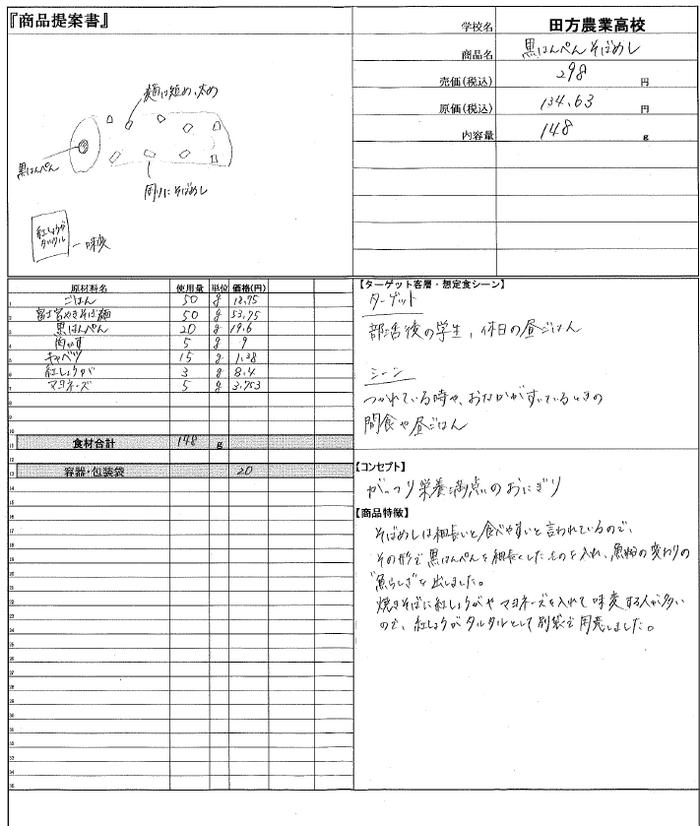 『商品提案書』
学校名 田方農業高校
商品名 黒はんぺんそばめし
売価(税込) 298 円
原価(税込) 134.63 円
内容量 148 g
麺は短め、太め
黒はんぺん
周りにそばめし
紅しょうが
タルタル
味変
原材料名 使用量 単位 価格(円)
1 ごはん 50 g 18.75
2 富士宮やきそば麺 50 g 53.75
3 黒はんぺん 20 g 19.6
4 肉かす 5 g 9
5 キャベツ 15 g 1.38
6 紅しょうが 3 g 8.4
7 マヨネーズ 5 g 3.753
8
9
10
11 食材合計 148 g
12
13 容器・包装袋 20
14
15
16
17
18
19
20
21
22
23
24
25
26
27
28
29
30
31
32
33
34
35
【ターゲット客層・想定食シーン】
ターゲット
部活後の学生、休日の昼ごはん
シーン
つかれている時や、おなかがすいているときの
間食や昼ごはん
【コンセプト】
がっつり栄養満点のおにぎり
【商品特徴】
そばめしは細長いと食べやすいと言われているので、
その形で黒はんぺんを細長くしたものを入れ、魚粉の変わりの
"魚らしさ"を出しました。
焼きそばに紅しょうがやマヨネーズを入れて味変する人が多い
ので、紅しょうがタルタルとして別袋で用意しました。